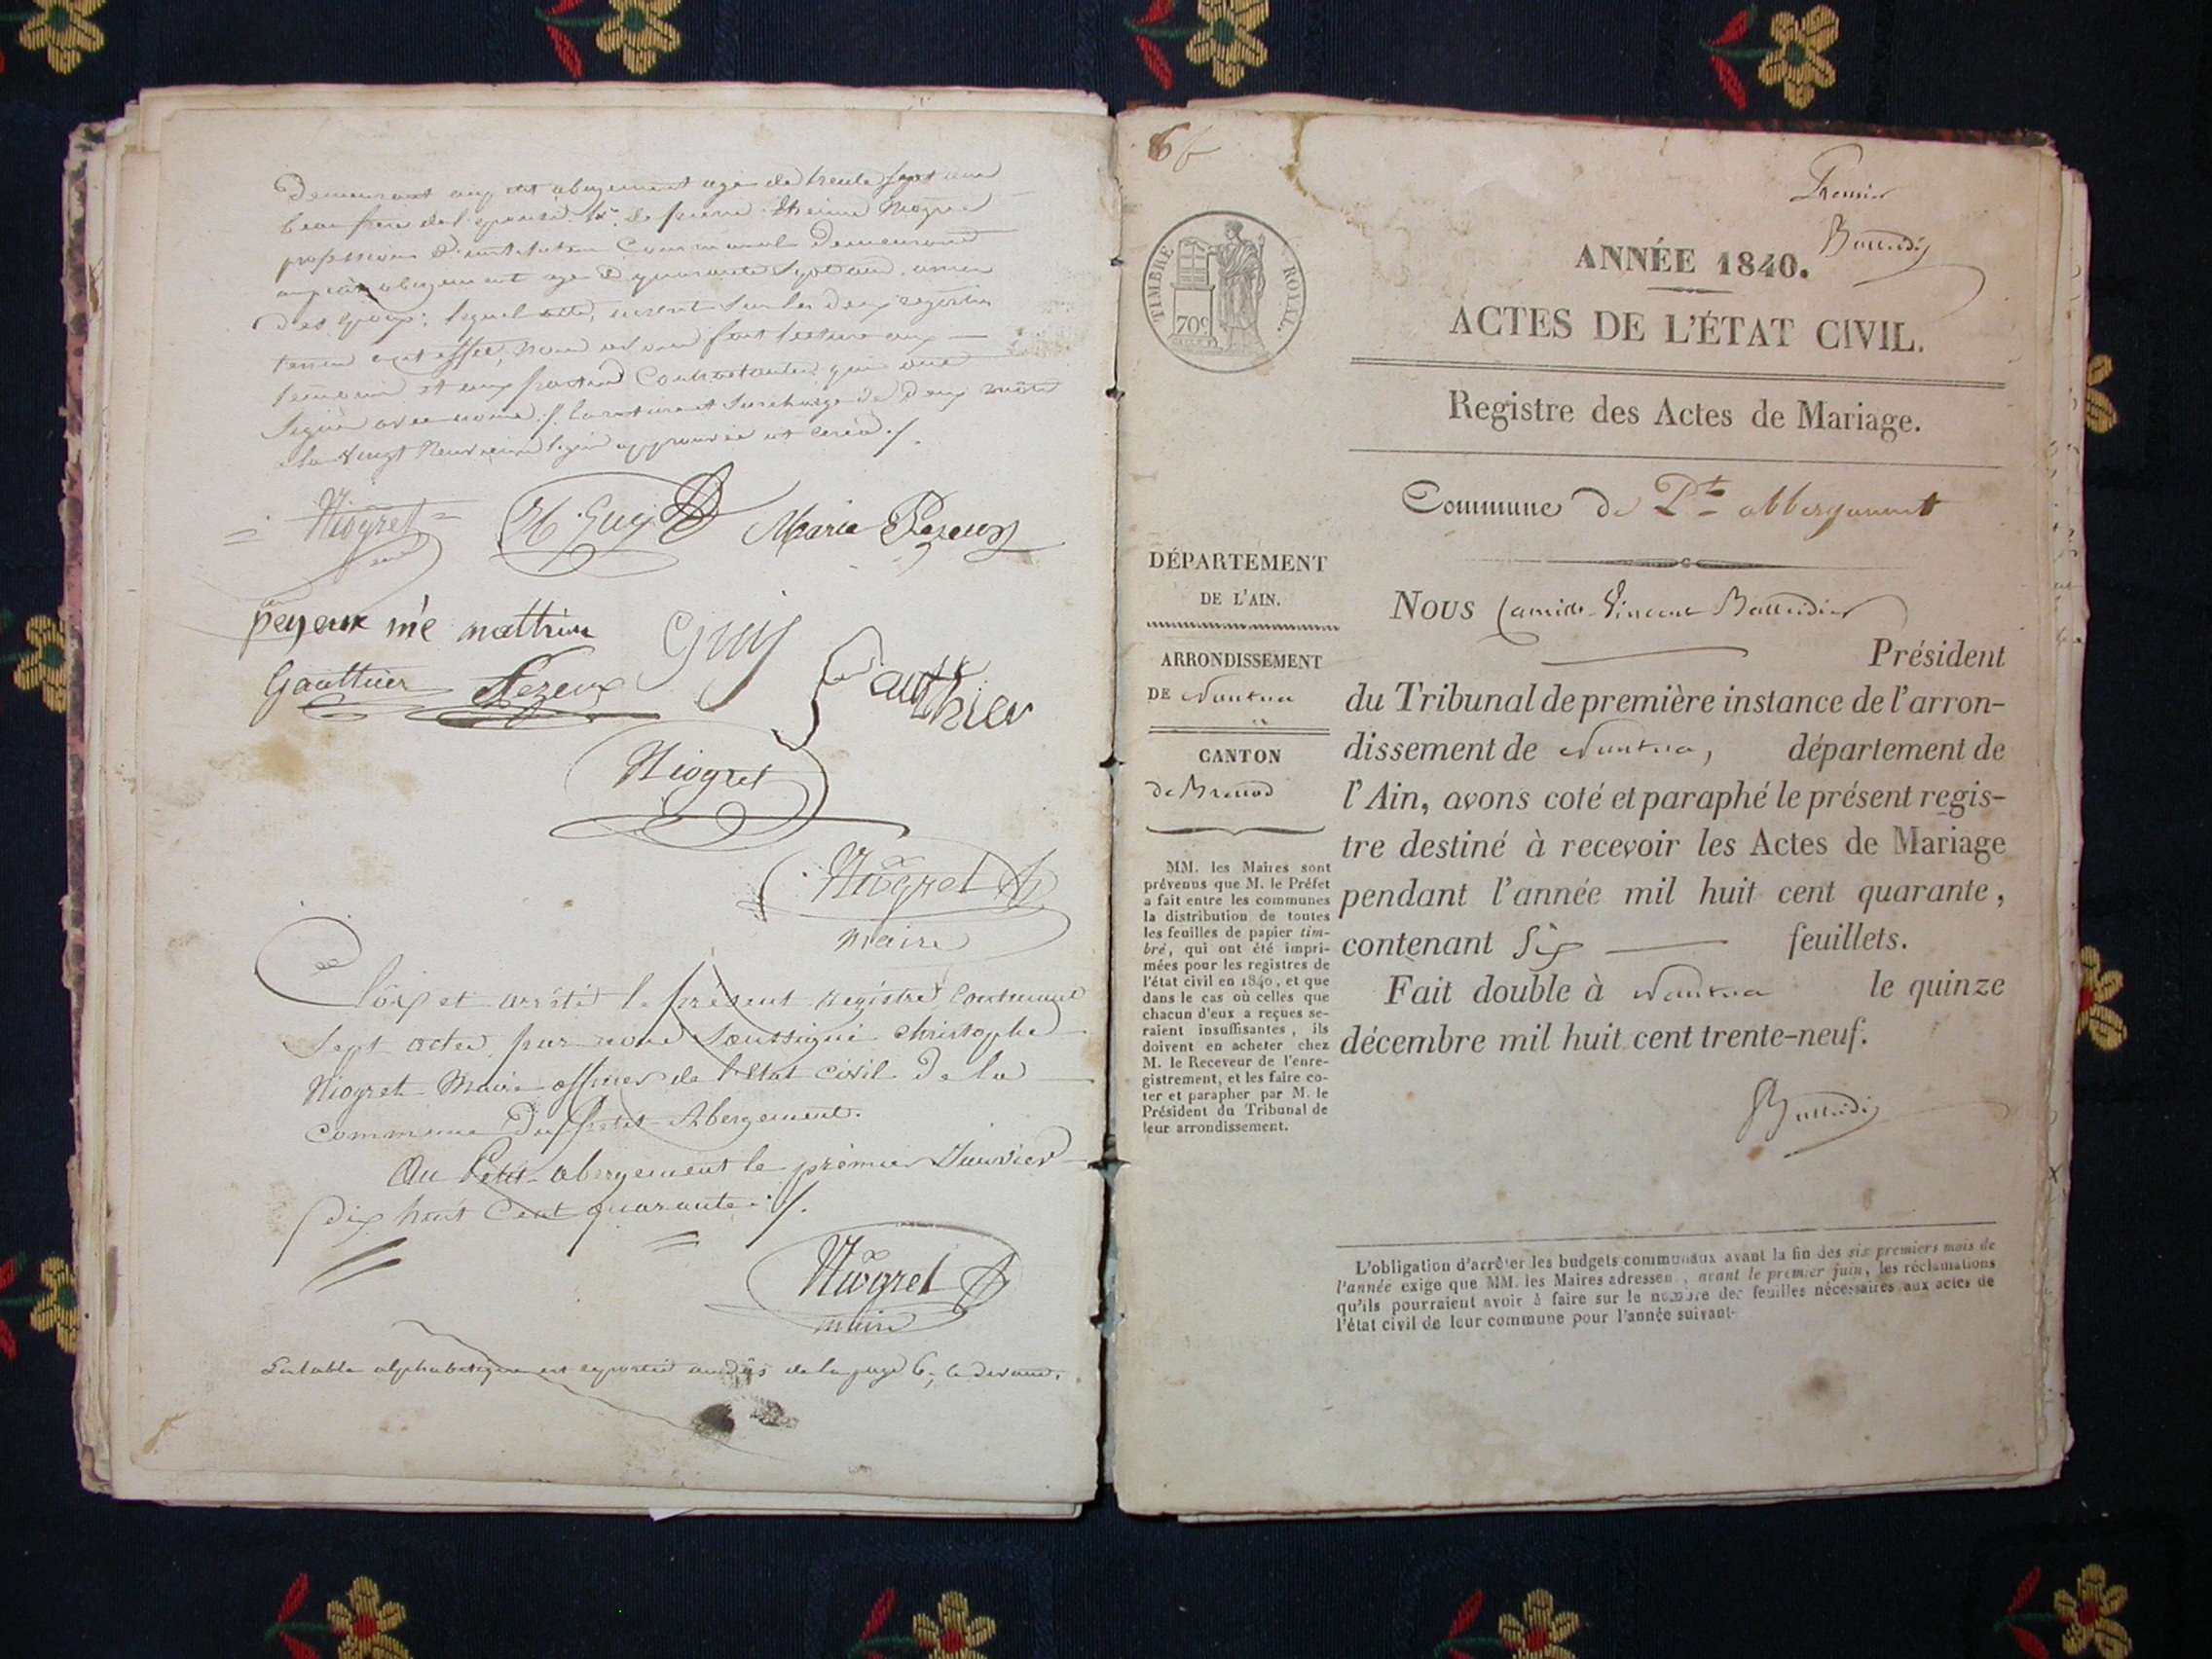 Demeurant aupetit abergement agé de trente sept ans
beau frere de l'epouse. 4e. de pierre Niogret
profession d'instituteur Communal Demeurant
abergement agé de quarante sept ans. amis
Des epoux; lequel acte, inscrit sur les deux registres
avons fait lecture aux
temoins et aux parties Contractantes qui ont
signé avec nous ./. la rature et surcharge de Deux mots
a la vingt neuvieme ligne approuvée ./.
Niogret H. Guy Marie Pezeux
peyeux mathieu Guy
Gauthier Pezeux Gauthier
Niogret
Niogret
maire
Clos et arrêté le present registre Contenant
Sept actes par nous Soussigné christophe
Niogret Maire officier de l'état civil de la
commune Du petit Abergement.
Au Petit abergement le premier Janvier
dix huit Cent quarante ./.
Niogret
maire
La table alphabetique est reportée au de la page 6, ci devant.
6
Premier
TIMBRE ROYAL.
70c
ANNÉE 1840.
ACTES DE L'ÉTAT CIVIL.
Registre des Actes de Mariage.
Commune de Pt abbergement
DÉPARTEMENT
DE L'AIN.
ARRONDISSEMENT
DE Nantua
CANTON
de Brenod
MM. les Maires sont
prévenus que M. le Préfet
a fait entre les communes
la distribution de toutes
les feuilles de papier tim-
bré, qui ont été impri-
mées pour les registres de
l'état civil en 1840, et que
dans le cas où celles que
chacun d'eux a reçues se-
raient insuffisantes, ils
doivent en acheter chez
M. le Receveur de l'enre-
gistrement, et les faire co-
ter et parapher par M. le
Président du Tribunal de
leur arrondissement.
Nous Camille Vincent
Président
du Tribunal de première instance de l'arron-
dissement de Nantua, département de
l'Ain, avons coté et paraphé le présent regis-
tre destiné à recevoir les Actes de Mariage
pendant l'année mil huit cent quarante,
contenant Six feuillets.
Fait double à Nantua le quinze
décembre mil huit cent trente-neuf.
L'obligation d'arrêter les budgets communaux avant la fin des six premiers mois de
l'année exige que MM. les Maires adressent, avant le premier juin, les réclamations
qu'ils pourraient avoir à faire sur le nombre des feuilles nécessaires aux actes de
l'état civil de leur commune pour l'année suivante